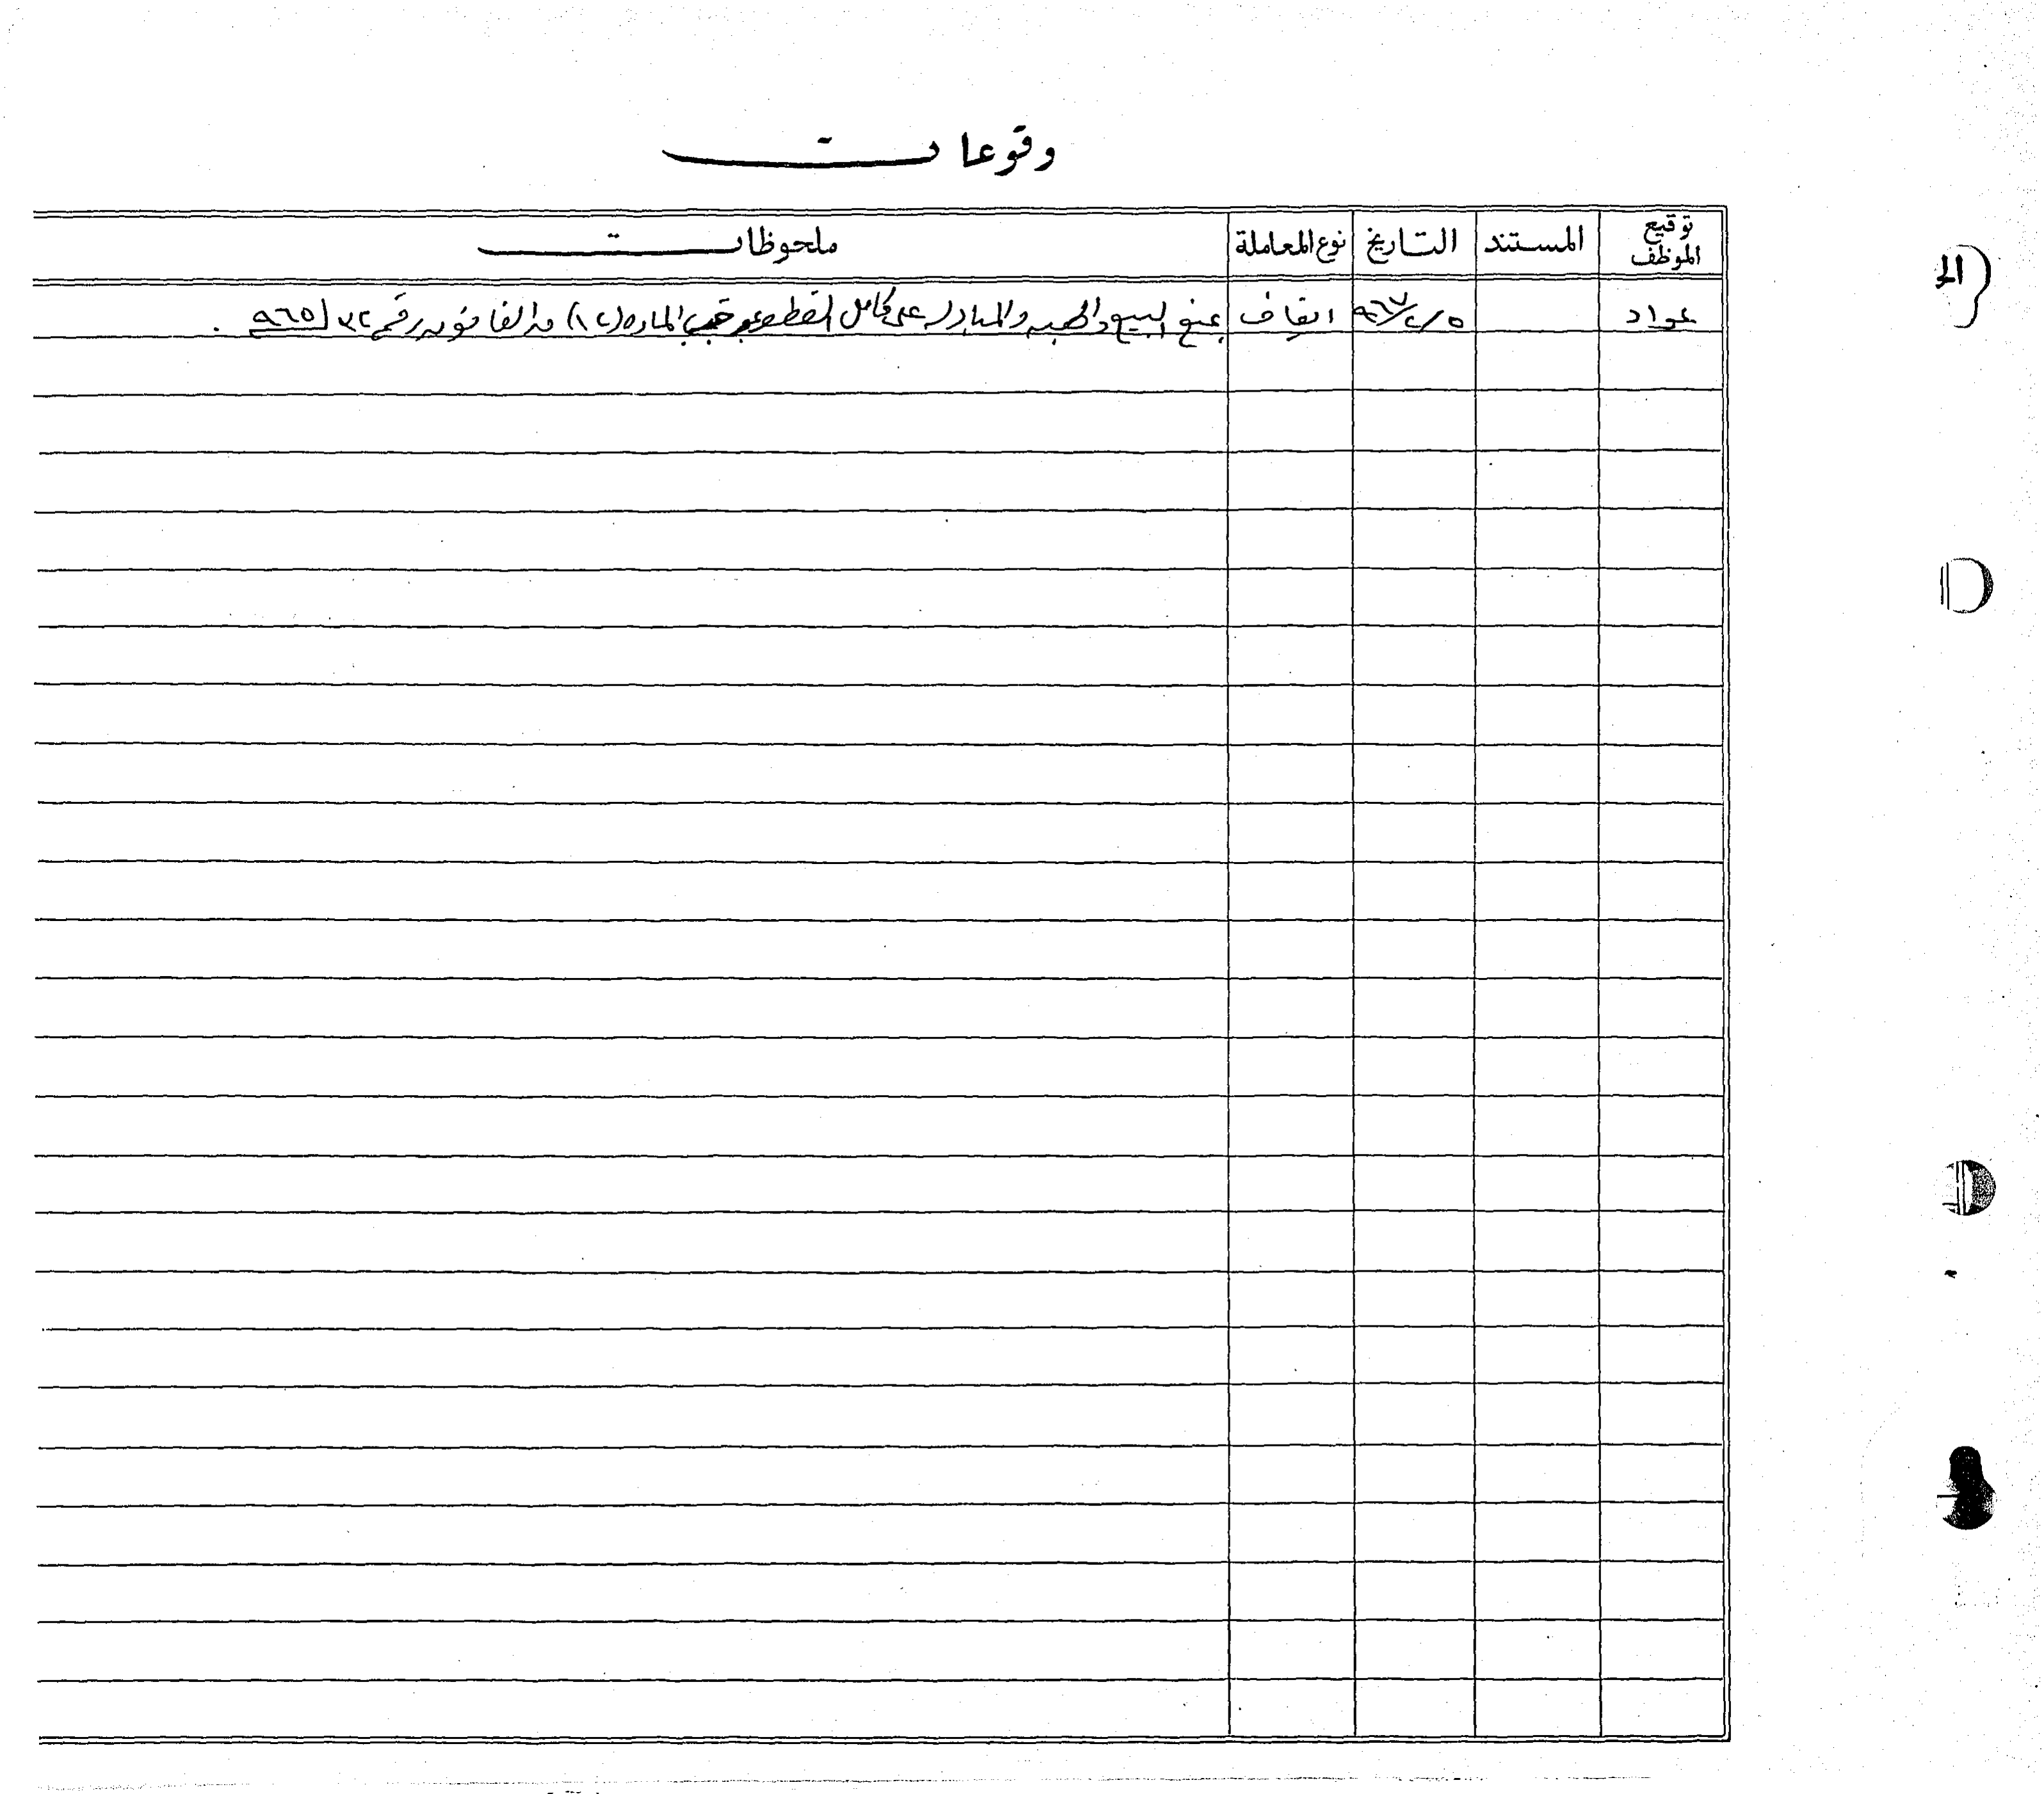 وقوعات
توقيع الموظف المستند التاريخ نوع المعاملة ملحوظات
عواد ٩٦٧/٢/٥ ايقاف يمنع البيع والهبه والمبادله على كامل القطعه بموجب الماده (١٢) من القانون رقم ٣٢/٩٦٥ .